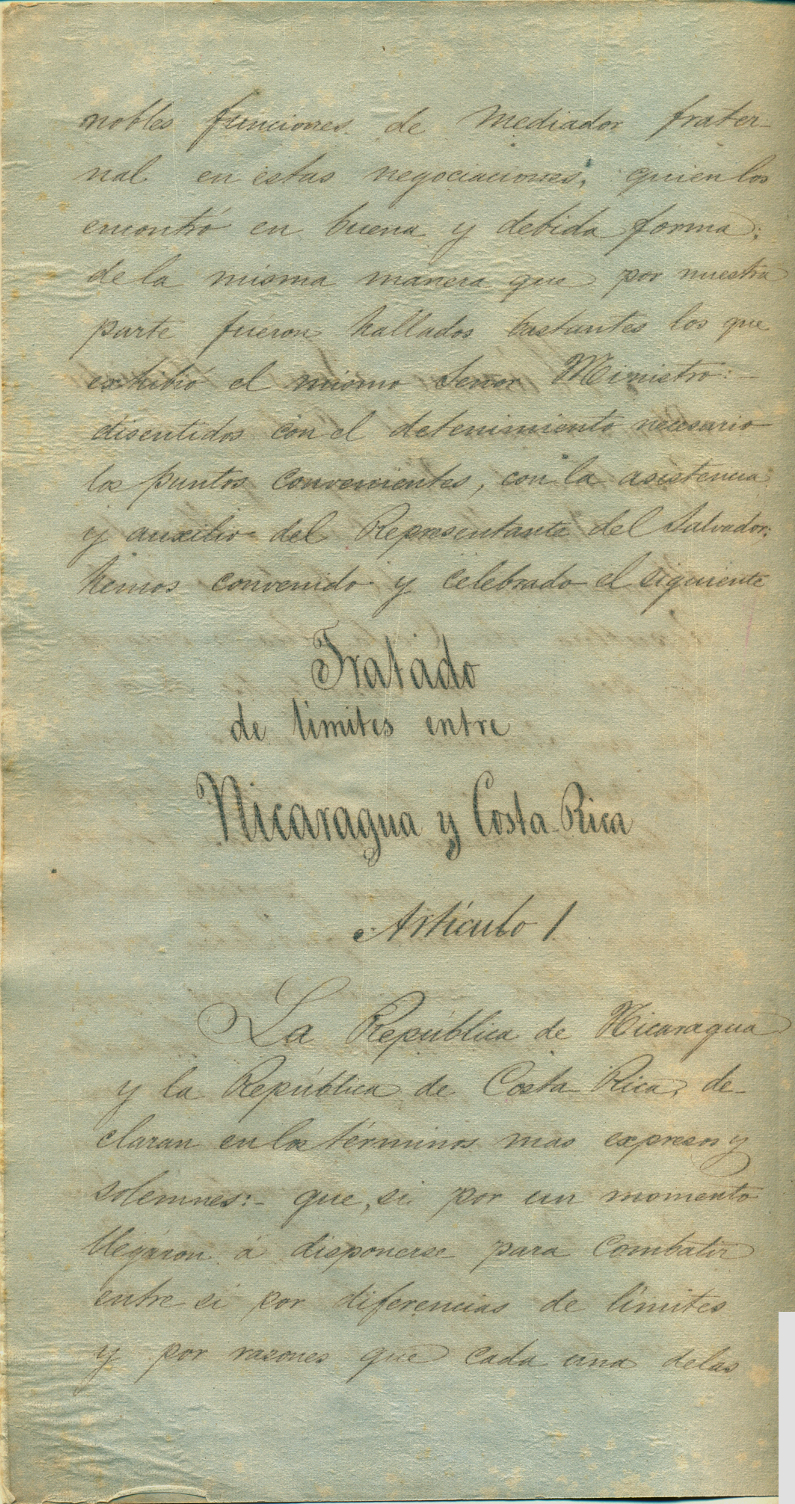 nobles funciones de mediador frater-
nal en estas negociaciones, quien los
encontró en buena y debida forma;
de la misma manera que por nuestra
parte fueron hallados bastantes los que
exhibió el mismo Señor Ministro:-
discutidos con el detenimiento necesario
los puntos convenientes, con la asistencia
y auxilio del Representante del Salvador,
hemos convenido y celebrado el siguiente
Tratado
de límites entre
Nicaragua y Costa Rica
Artículo 1
La República de Nicaragua
y la República de Costa Rica, de-
claran en los términos mas expresos y
solemnes:- que, si por un momento
llegáron á disponerse para combatir
entre sí por diferencias de límites
y por razones que cada una de las